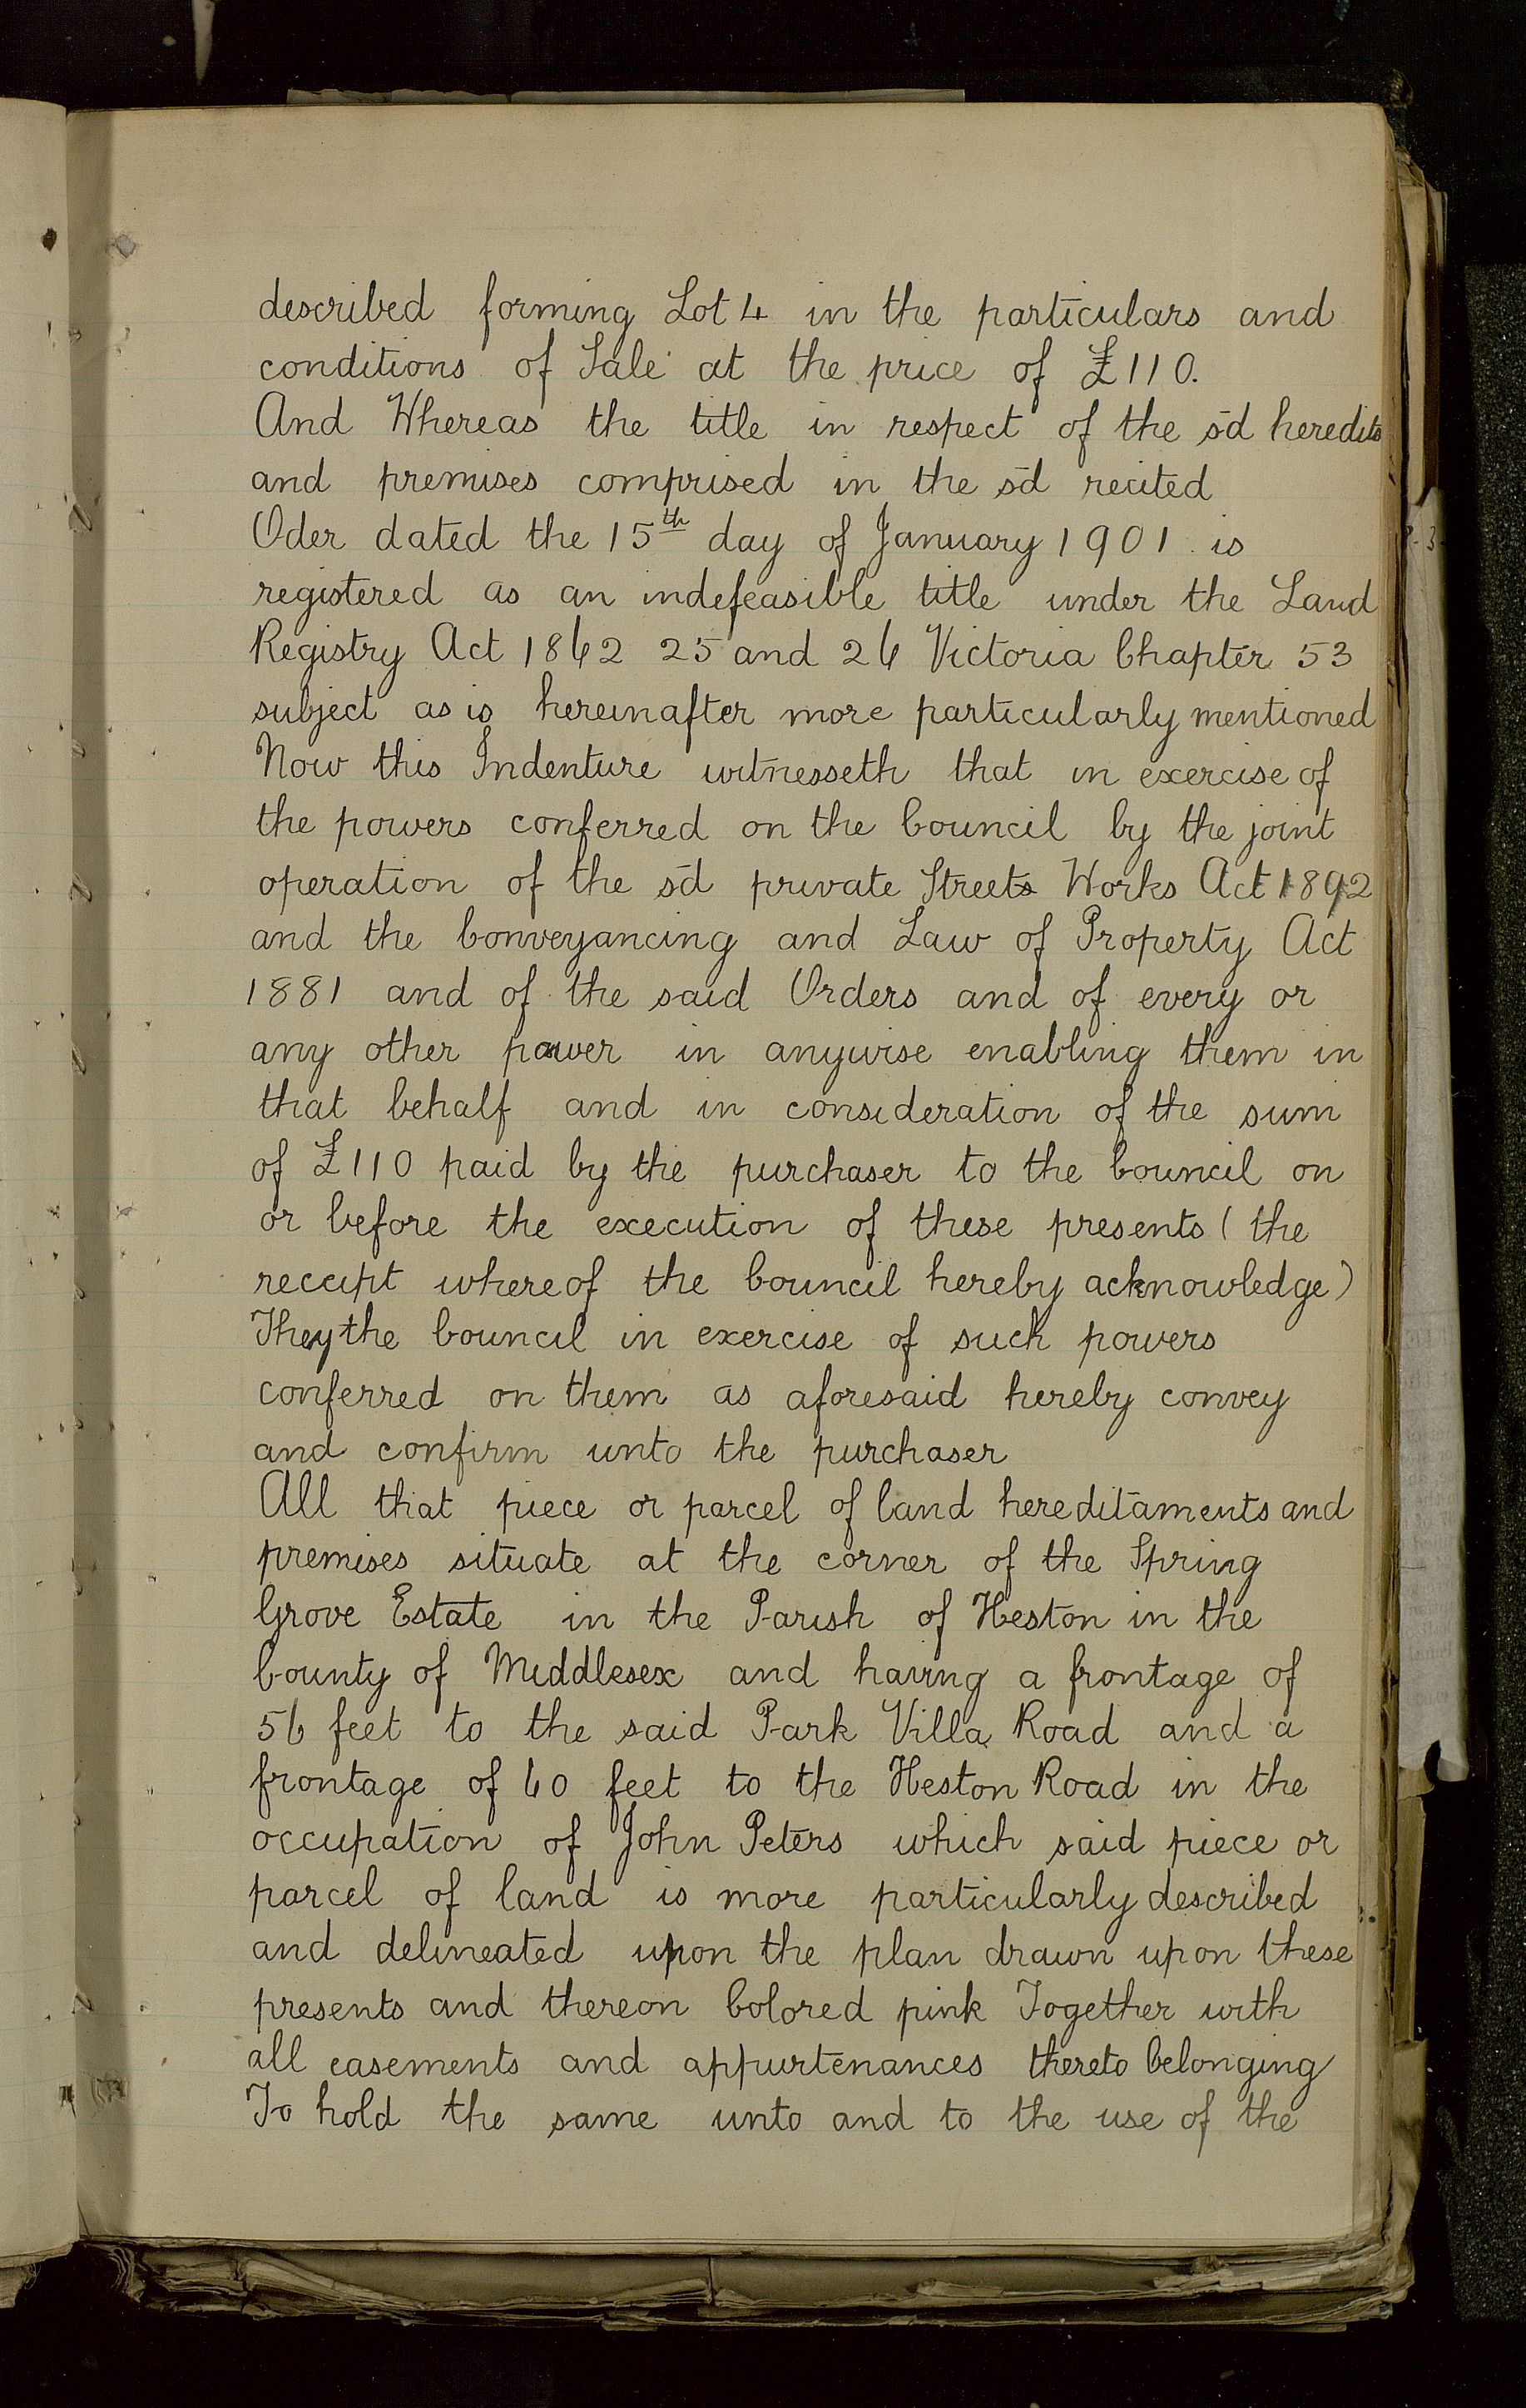 described forming Lot 4 in the particulars and
conditions of Sale at the price of £110.
And Whereas the title in respect of the sd heredits
and premises comprised in the sd recited
Oder dated the 15th day of January 1901 is
registered as an indefeasible title under the Land
Registry Act 1862 25 and 26 Victoria Chapter 53
subject as is hereinafter more particularly mentioned
Now this Indenture witnesseth that in exercise of
the powers conferred on the Council by the joint
operation of the sd private Streets Works Act 1892
and the Conveyancing and Law of Property Act
1881 and of the said Orders and of every or
any other power in anywise enabling them in
that behalf and in consideration of the sum
of £110 paid by the purchaser to the Council on
or before the execution of these presents (the
receipt whereof the Council hereby acknowledge)
They the Council in exercise of such powers
conferred on them as aforesaid hereby convey
and confirm unto the purchaser
All that piece or parcel of land hereditaments and
premises situate at the corner of the Spring
Grove Estate in the Parish of Heston in the
County of Middlesex and having a frontage of
56 feet to the said Park Villa Road and a
frontage of 60 feet to the Heston Road in the
occupation of John Peters which said piece or
parcel of land is more particularly described
and delineated upon the plan drawn upon these
presents and thereon Colored pink Together with
all easements and appurtenances thereto belonging
To hold the same unto and to the use of the